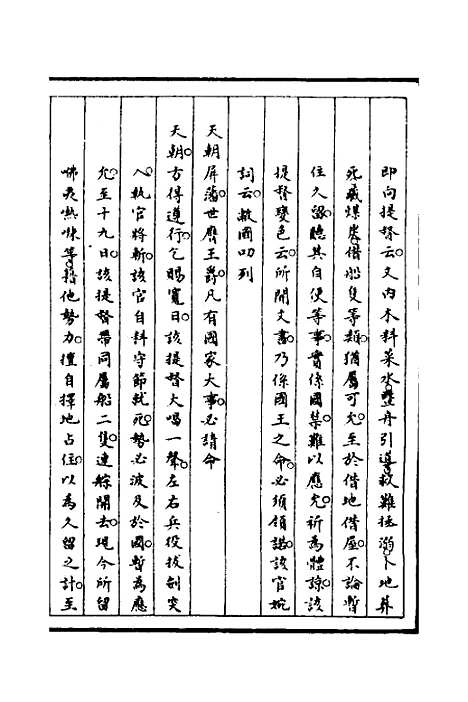 即向提督云文内木料菜水暨舟引導救難拯溺卜地葬
死或煤炭借船隻等類猶屬可允至於借地借屋不論暫
住久留聽其自便等事實係國禁難以應允祈為體諒該
提督變色云所開文書乃係國王之命必須領諾該官婉
詞云敝國叨列
天朝屏藩世膺王爵凡有國家大事必請命
天朝方得遵行乞賜寬日該提督大喝一聲左右兵役拔劍突
入執官將斬該官自料守節就死勢必波及於國暫為應
允至十九日該提督帶同屬船二隻連䑸開去現今所留
咈夷㷼咪等藉他勢力擅自擇地占住以為久留之計至